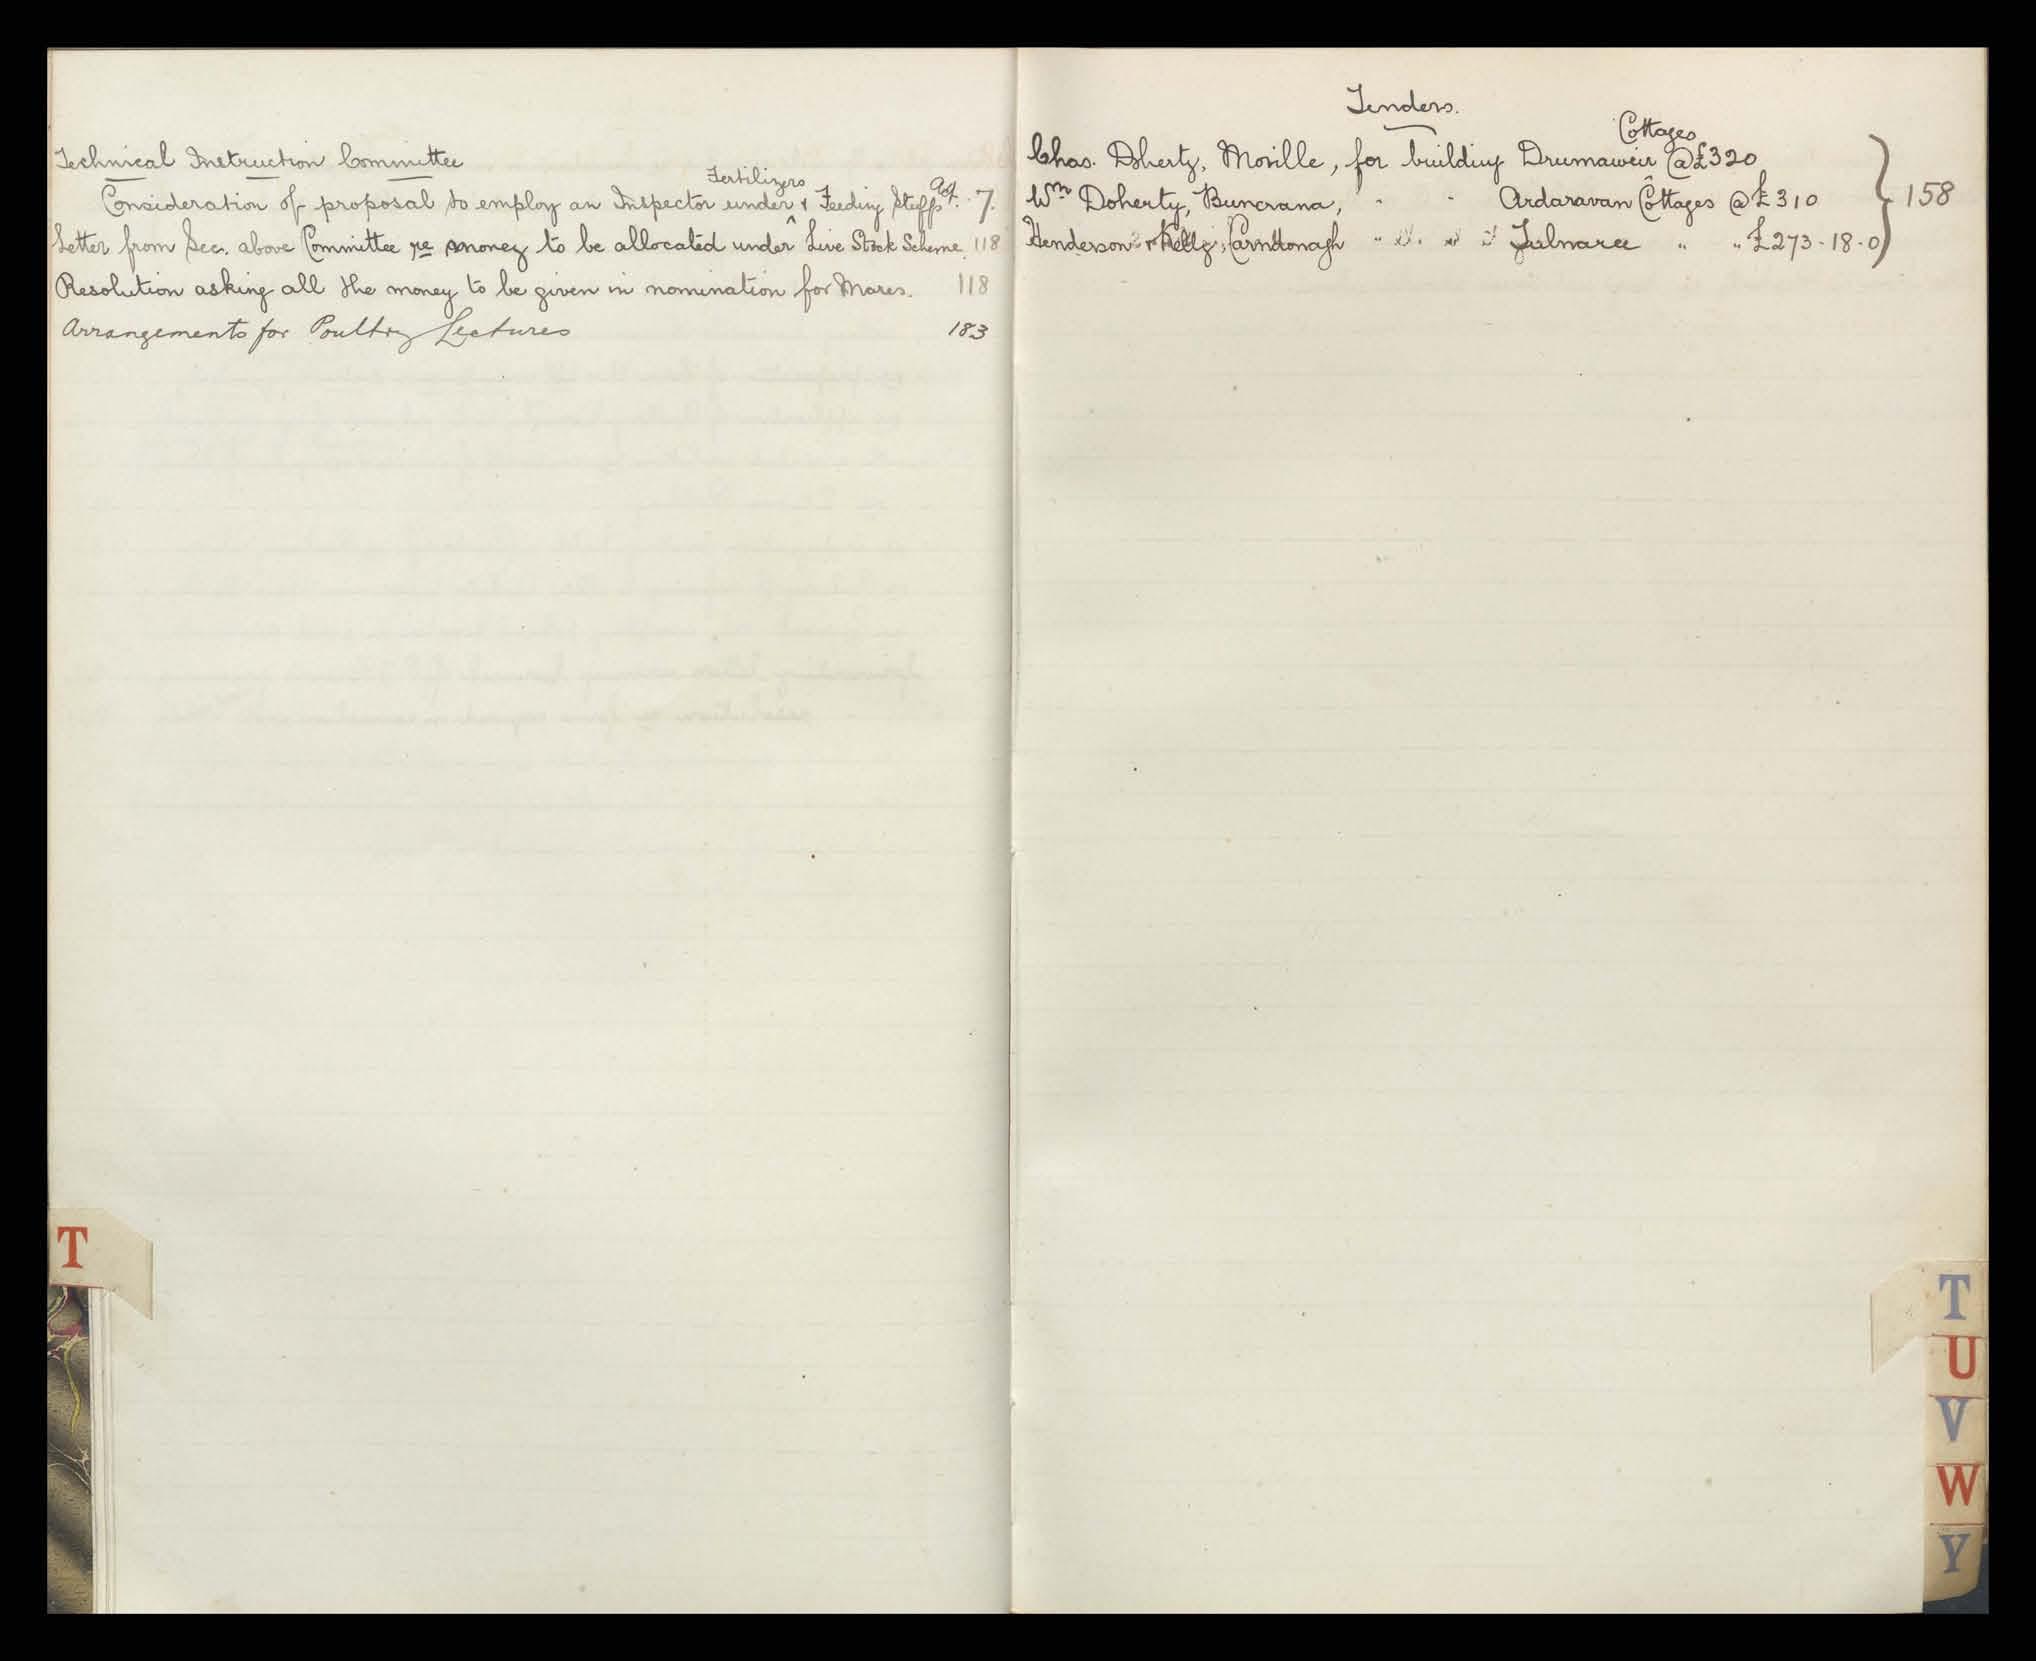 Technical Instruction Committee
Consideration of proposal to employ an Inspector under Fertilizers & Feeding Stuffs Act. 7.
Letter from Sec. above Committee re money to be allocated under Live Stock Scheme. 118
Resolution asking all the money to be given in nomination for Mares. 118
Arrangements for Poultry Lectures 183
T
Tenders.
Chas. Doherty, Moville, for building Drumaweir Cottages @ £320
Wm Doherty, Buncrana, " " Ardaravan Cottages @ £310 } 158
Henderson & Kelly, Carndonagh " " " " Tulnaree " " £273-18-0
T
U
V
W
Y